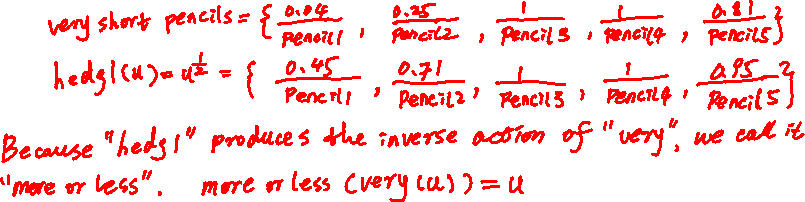 very short pencils = { 0.04/Pencil1, 0.25/Pencil2, 1/Pencil3, 1/Pencil4, 0.81/Pencil5 }
hedg1(u) = u^{1/2} = { 0.45/Pencil1, 0.71/Pencil2, 1/Pencil3, 1/Pencil4, 0.95/Pencil5 }
Because "hedg1" produces the inverse action of "very", we call it
"more or less". more or less (very(u)) = u